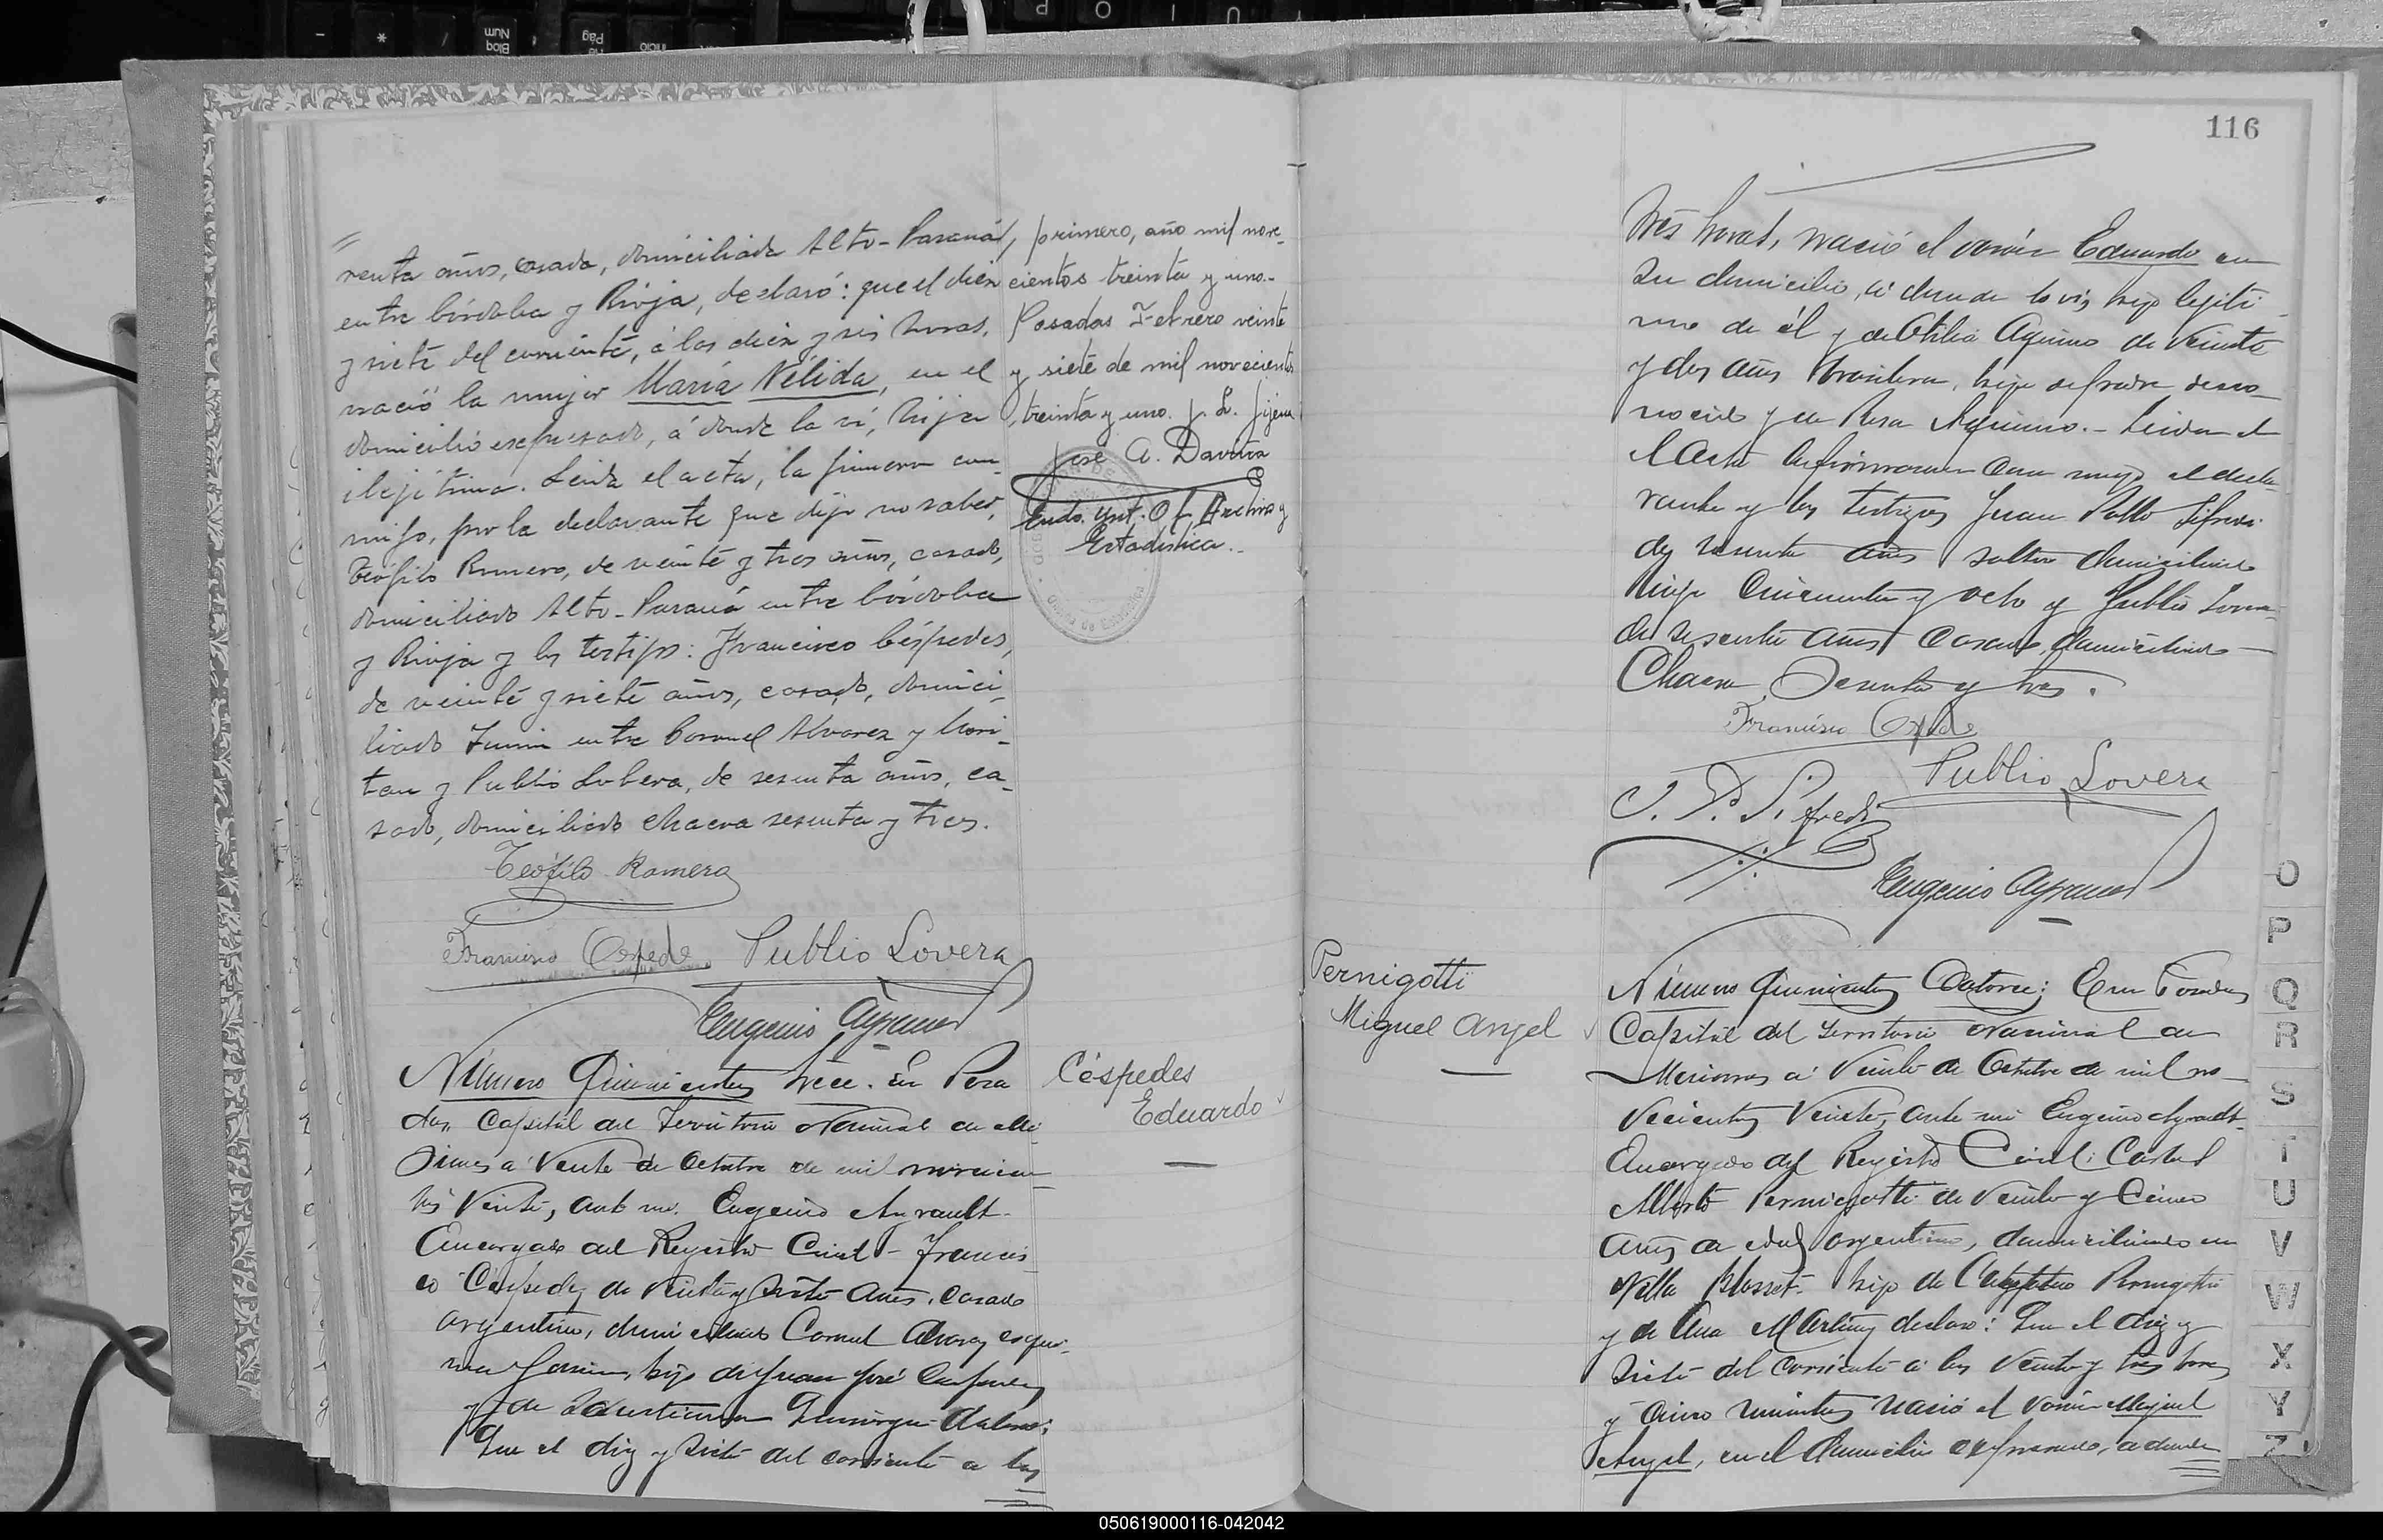 renta años, casada, domiciliada Alto-Paraná
entre Córdoba y Rioja, declaró: que el diez
y siete del corriente, á las diez y seis horas,
nació la mujer María Nélida, en el
domicilio expresado, á donde la ví, hija
ilejítima. Leida el acta, la firmaron con-
migo, por la declarante que dijo no saber,
Teófilo Romero, de veinte y tres años, casado,
domiciliado Alto-Paraná entre Córdoba
y Rioja y los testigos: Francisco Céspedes,
de veinte y siete años, casado, domici-
liado Junin entre Coronel Alvarez y
y Publio Lobera, de sesenta años, ca-
sado, domiciliado Chacra sesenta y tres.
Teófilo Romero
Francisco Publio Lovera
Eugenio Ayrault
, primero, año mil nove-
cientos treinta y uno.-
Posadas Febrero veinte
y siete de mil novecientos
treinta y uno. J. L.
José A.
Of. Archivo y
Estadística.-
Número Quinientos trece. En Posa
das, Capital del Territorio Nacional de Mi
siones a Veinte de Octubre de mil novecien
tos Veinte, ante mi Eugenio Ayrault
Encargado del Registro Civil - Francis
co Céspedes de Veinte y siete años, casado
argentino, domiciliado Coronel Alvarez esqui-
na Junin, hijo de Juan José
y de
Que el diez y siete del corriente a las
Céspedes
Eduardo
116
tres horas, nació el varón Eduardo en
su domicilio, á donde lo vi, hijo lejiti
mo de él y de Otilia Aquino de Veinte
y dos años brasilera, hija de padre desco-
nocido y de Rosa Aquino.- Leida el
el Acta la firmaron con migo el decla-
rante y los testigos Juan Pablo Sifredi
de sesenta años soltero domiciliado
Rioja Cincuenta y ocho y Publio Lovera
de sesenta años casado, domiciliado
Chacra Sesenta y tres.
Francisco
Publio Lovera
J. P. Sifredi
Eugenio Ayrault
Pernigotti
Miguel Angel
Número Quinientos Catorce; En Posadas
Capital del Territorio Nacional de
Misiones a Veinte de Octubre de mil no-
vecientos Veinte, ante mi Eugenio Ayrault
Encargado del Registro Civil: Carlos
Alberto Pernigotti de Veinte y Cinco
años de edad argentino, domiciliado en
Villa hijo de Pernigotti
y de Ana Martinez declaró: Que el diez y
siete del corriente a las Veinte y tres horas
y Cinco minutos nació el Varón Miguel
Angel, en el domicilio expresado, a donde
O
P
Q
R
S
T
U
V
W
X
Y
Z
050619000116-042042